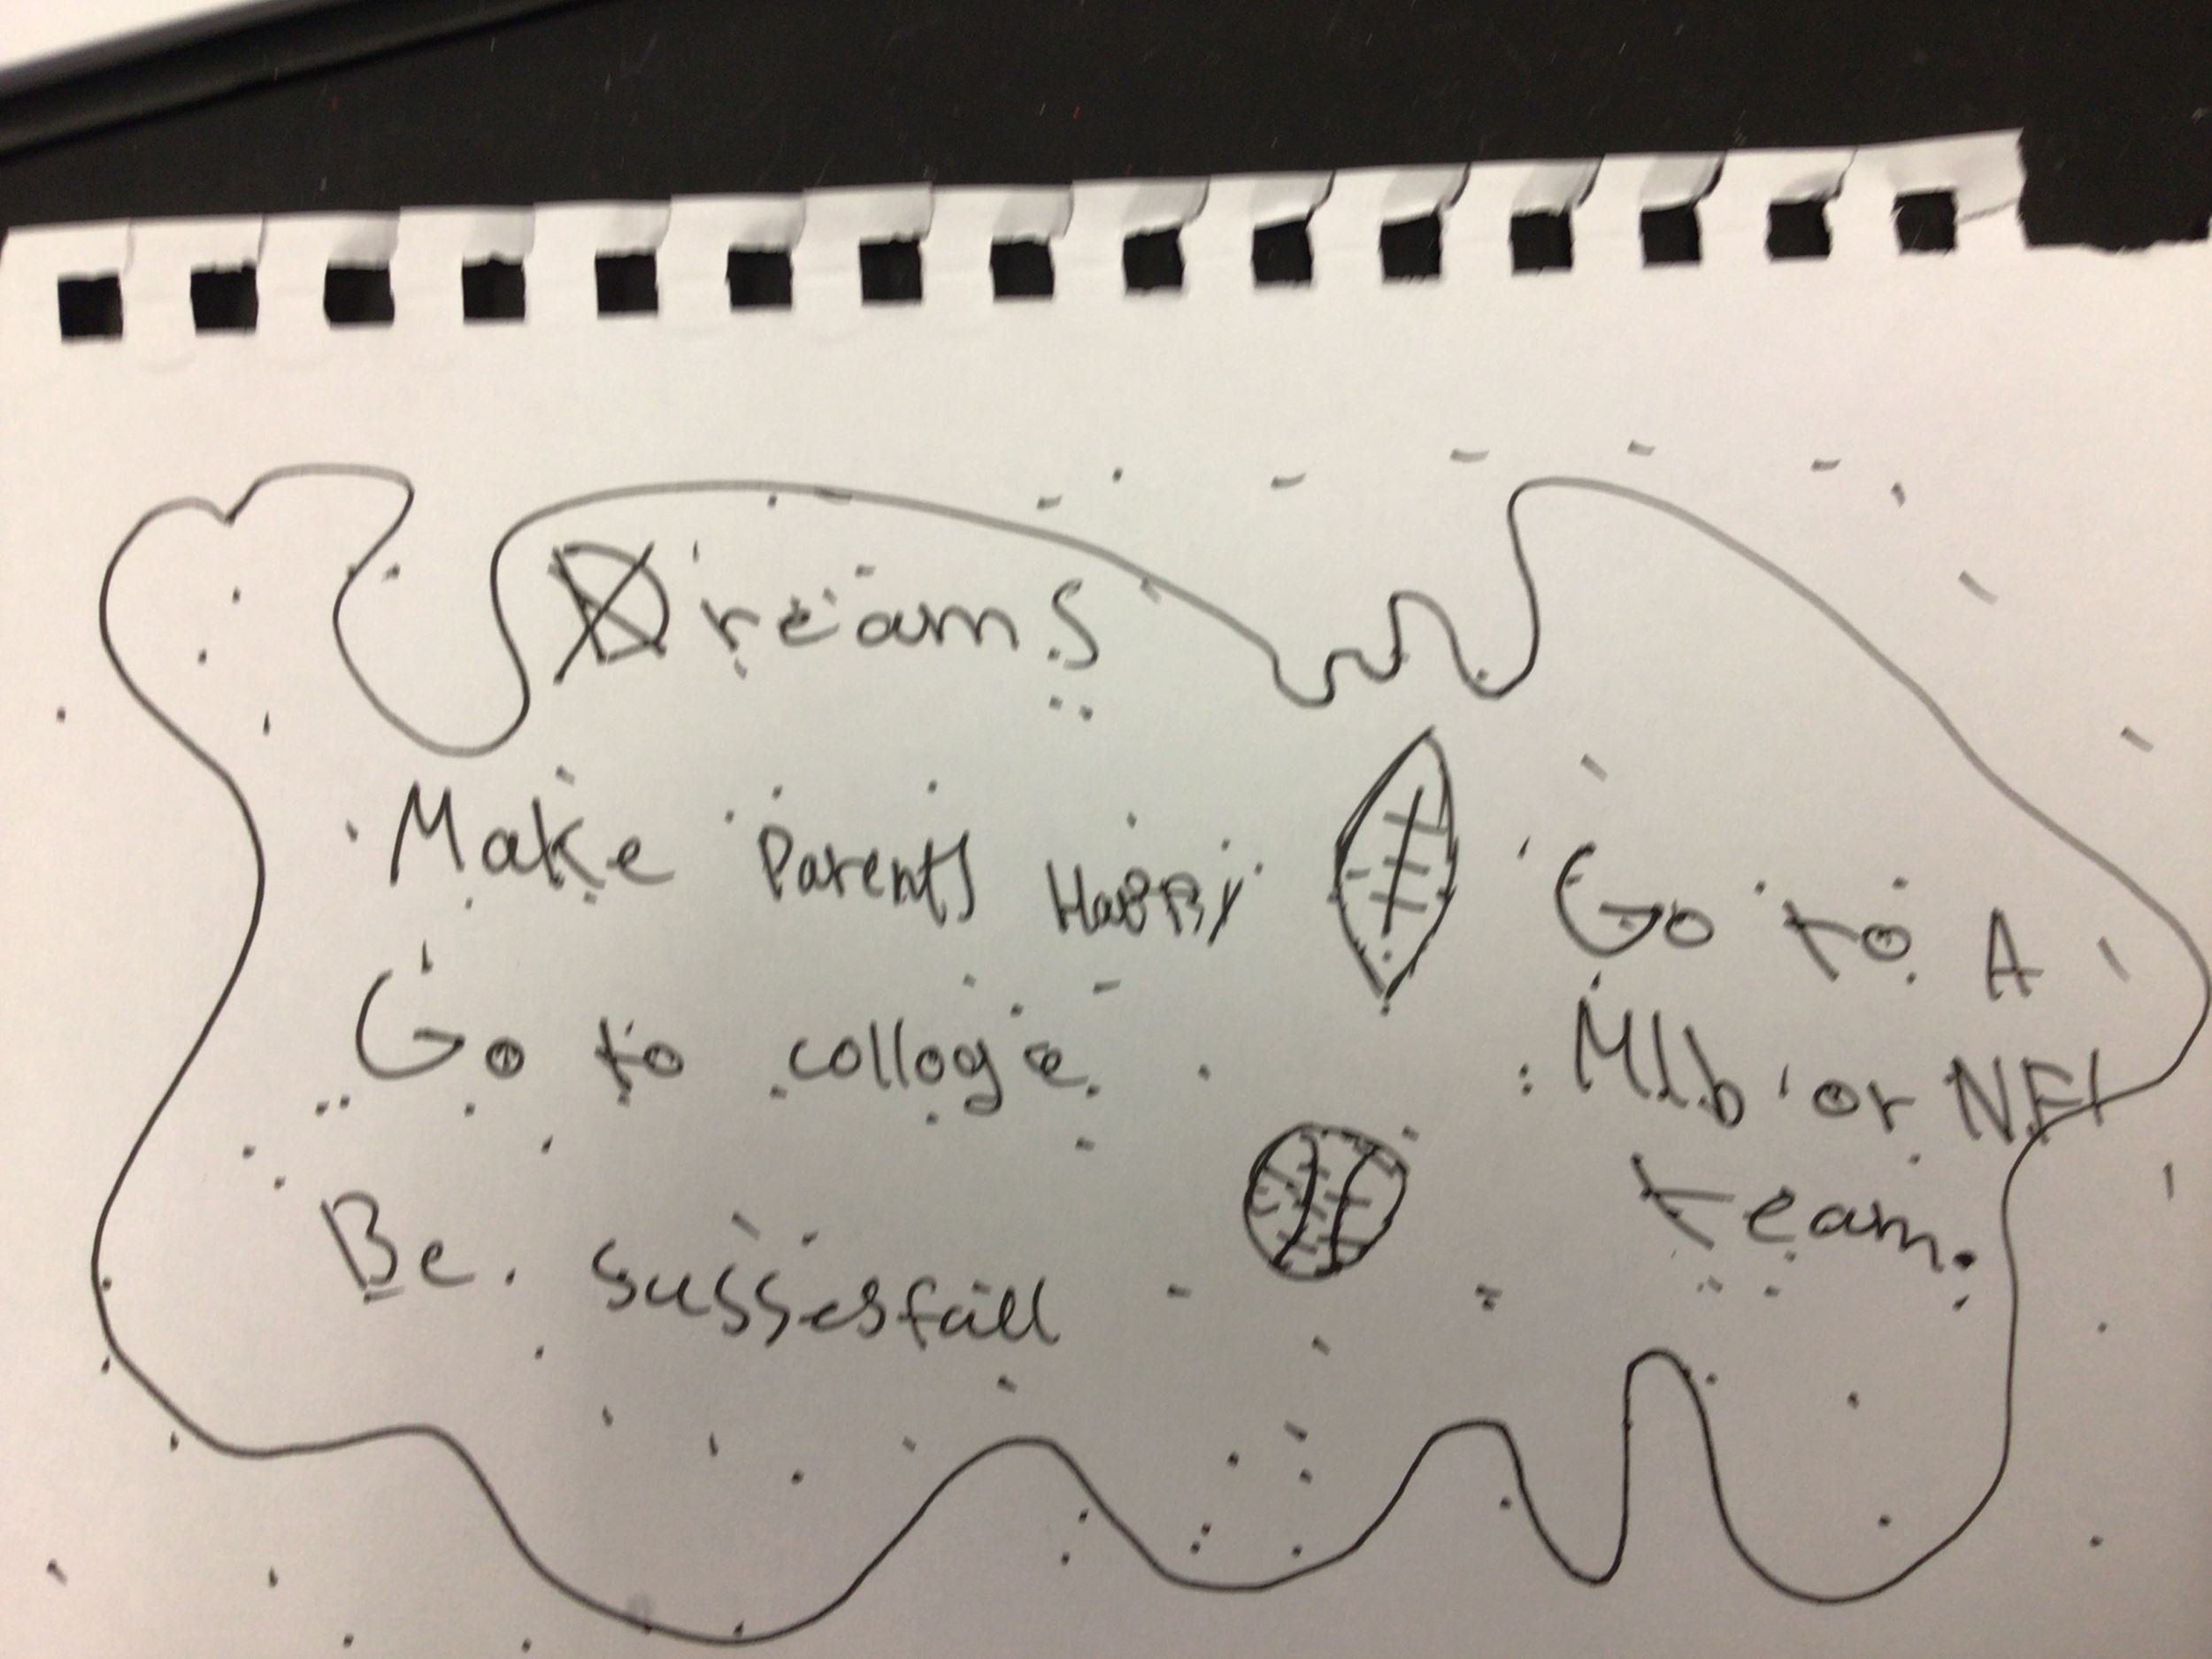 Dreams
Make Parents Happy
Go to colloge
Be. sussesfull
Go to A
Mlb or NFL
team.